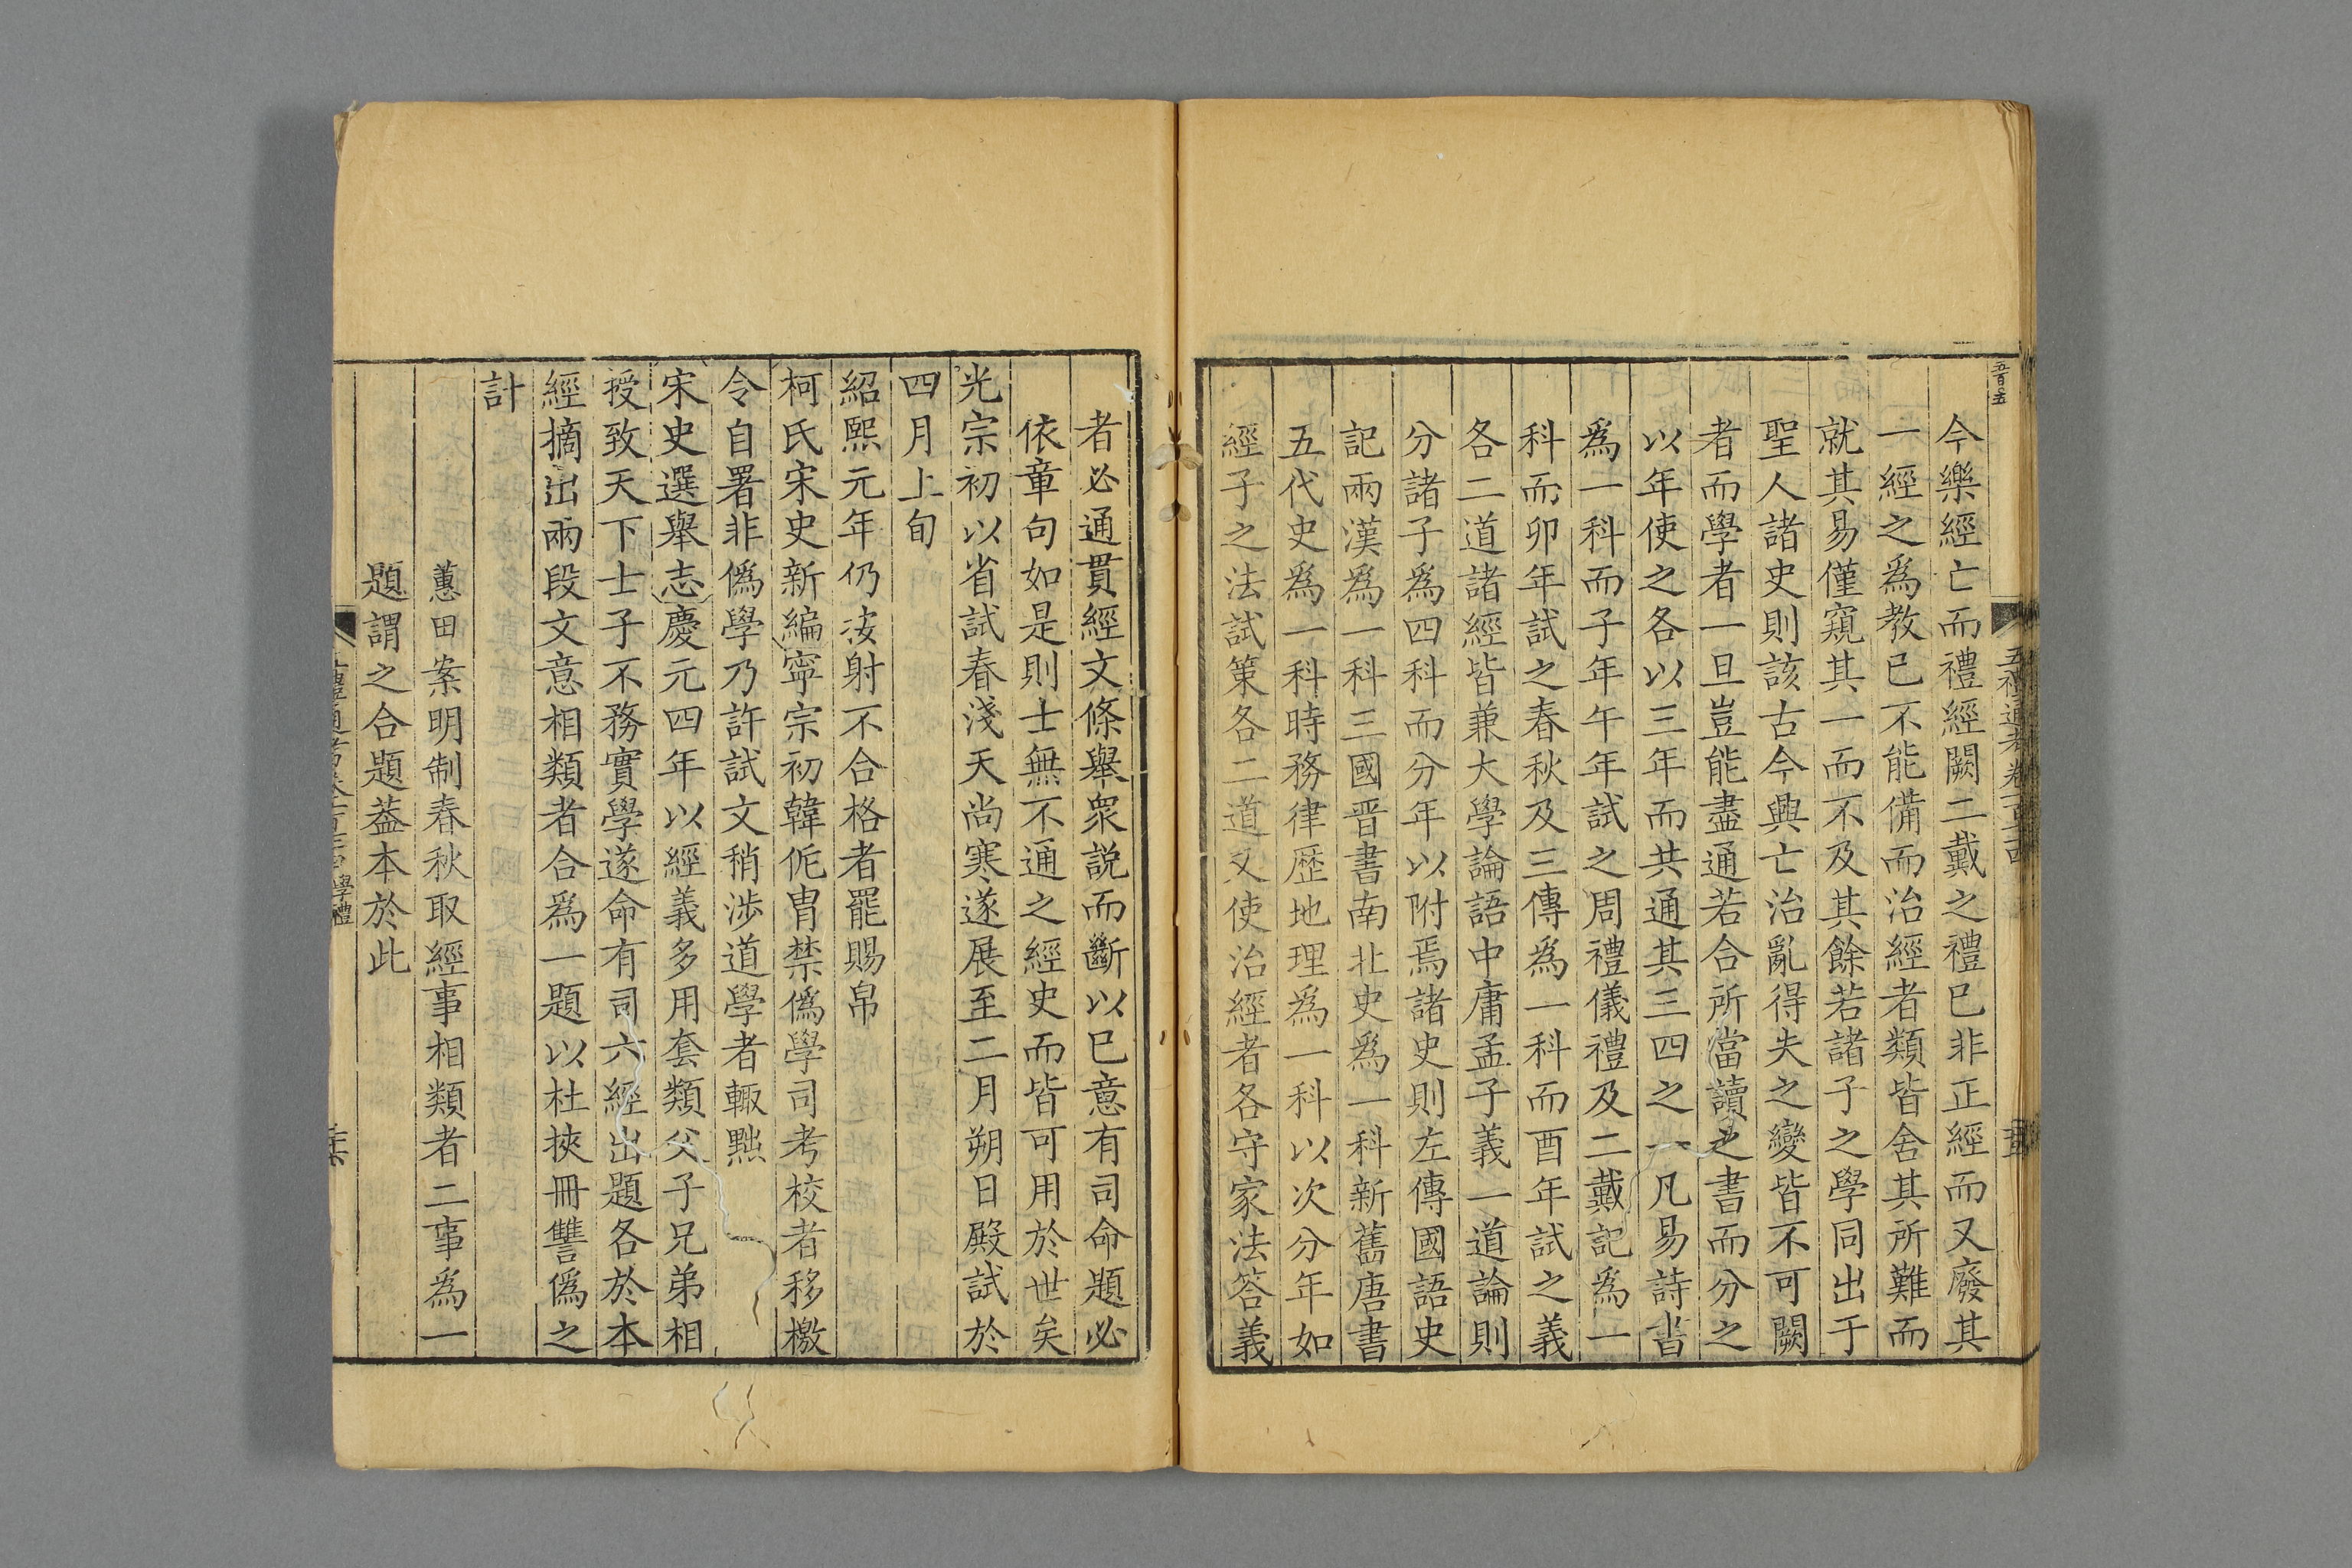 今樂經亡而禮經闕二戴之禮已非正經而又廢其
一經之爲教已不能備而治經者類皆舍其所難而
就其易僅窺其一而不及其餘若諸子之學同出于
聖人諸史則該古今興亡治亂得失之變皆不可闕
者而學者一旦豈能盡通若合所當讀之書而分之
以年使之各以三年而共通其三四之一凡易詩書
爲一科而子年午年試之周禮儀禮及二戴記爲一
科而卯年試之春秋及三傳爲一科而酉年試之義
各二道諸經皆兼大學論語中庸孟子義一道論則
分諸子爲四科而分年以附焉諸史則左傳國語史
記兩漢爲一科三國晉書南北史爲一科新舊唐書
五代史爲一科時務律歷地理爲一科以次分年如
經子之法試策各二道又使治經者各守家法答義
者必通貫經文條舉衆說而斷以已意有司命題必
依章句如是則士無不通之經史而皆可用於世矣
光宗初以省試春淺天尚寒遂展至二月朔日殿試於
四月上旬
紹熙元年仍按射不合格者罷賜帛
柯氏宋史新編寧宗初韓侂冑禁僞學司考校者移檄
令自署非僞學乃許試文稍涉道學者輙黜
宋史選舉志慶元四年以經義多用套類父子兄弟相
授致天下士子不務實學遂命有司六經出題各於本
經摘出兩段文意相類者合爲一題以杜挾冊讐僞之
計
蕙田案明制春秋取經事相類者二事爲一
題謂之合題葢本於此